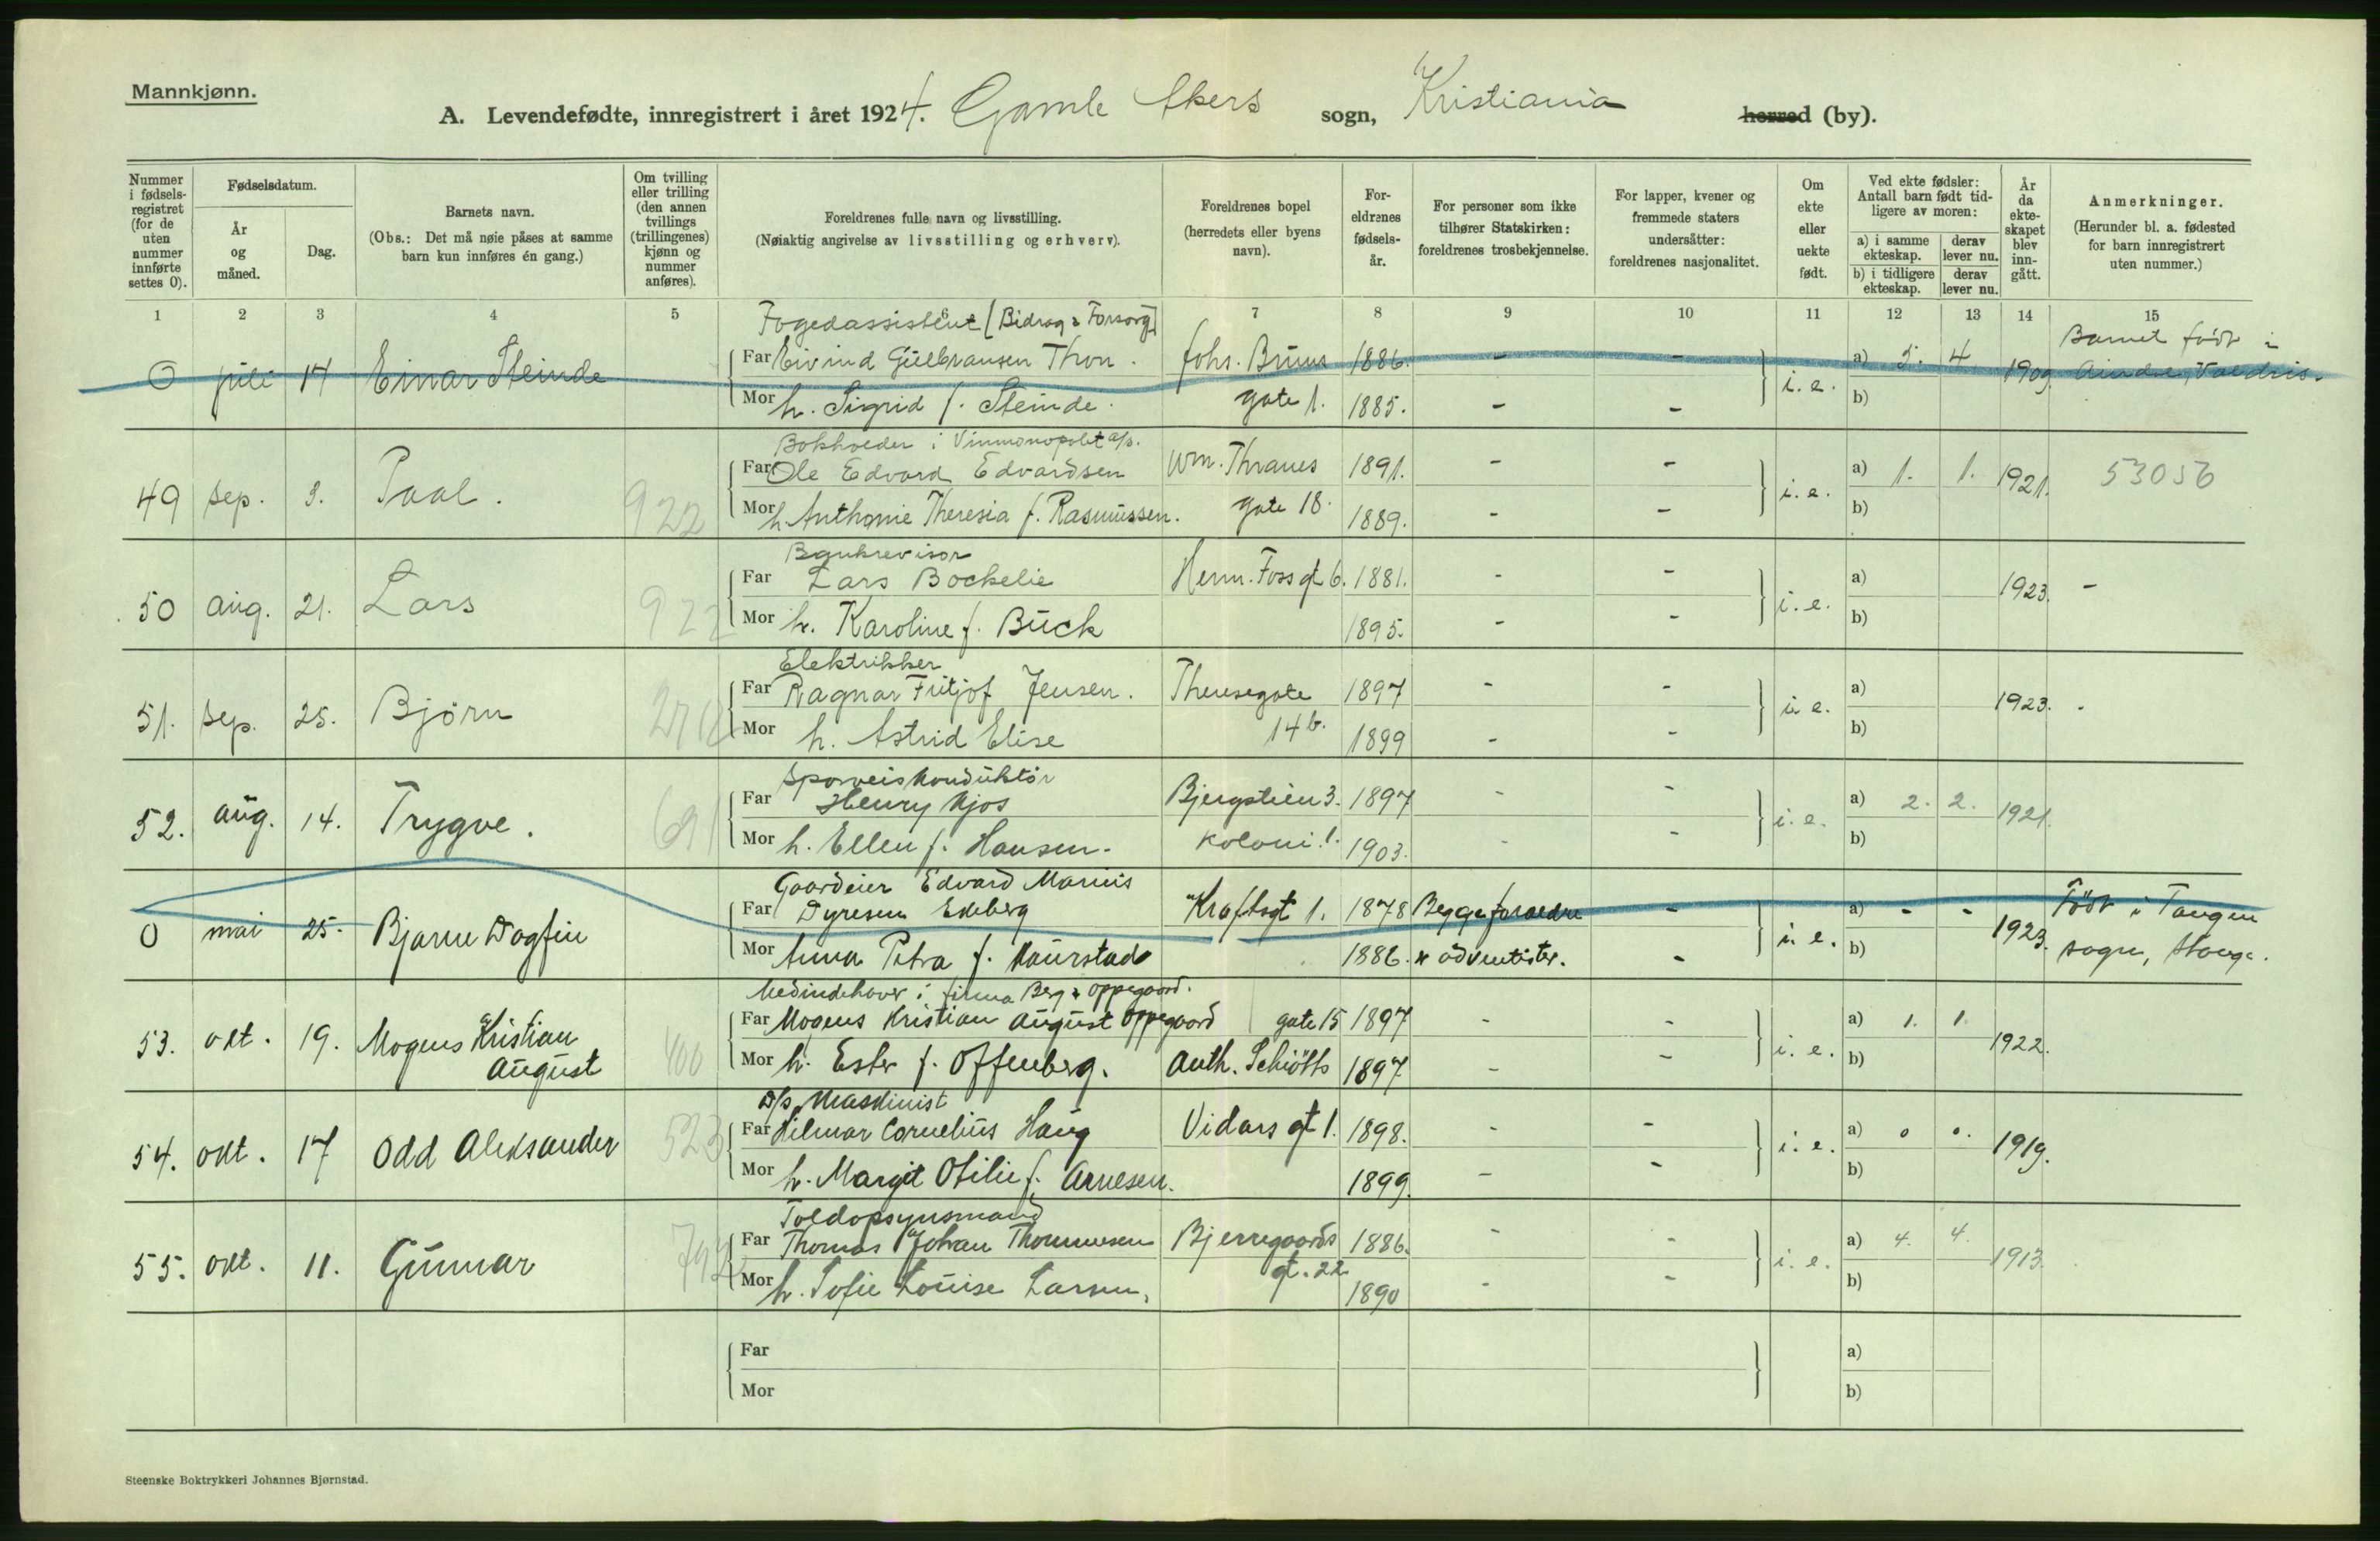 Mannkjønn.
A. Levendefødte, innregistrert i året 1924. Gamle Akers sogn, Kristiania herred (by).
Nummer i fødsels-registret (for de uten nummer innførte settes 0).
Fødselsdatum.
År og måned.
Dag.
Barnets navn.
(Obs.: Det må nøie påses at samme barn kun innføres én gang.)
Om tvilling eller trilling (den annen tvillings (trillingenes) kjønn og nummer anføres).
Foreldrenes fulle navn og livsstilling.
(Nøiaktig angivelse av livsstilling og erhverv).
Foreldrenes bopel (herredets eller byens navn).
For-eldrenes fødsels-år.
For personer som ikke tilhører Statskirken: foreldrenes trosbekjennelse.
For lapper, kvener og fremmede staters undersåtter: foreldrenes nasjonalitet.
Om ekte eller uekte født.
Ved ekte fødsler: Antall barn født tid-ligere av moren:
a) i samme ekteskap.
derav lever nu.
b) i tidligere ekteskap.
derav lever nu.
År da ekte-skapet blev inn-gått.
Anmerkninger.
(Herunder bl. a. fødested for barn innregistrert uten nummer.)
1 2 3 4 5 7 8 9 10 11 12 13 14 15
Fogedassistent [Bidrag & Forsorg]
0 juli 17 Einar Steinde Far Eivind Gulbransen Thon. Johs. Bruns 1886. - - a) 5. 4 1909 Barnet født i
Mor h. Sigrid f. Steinde. gate 1. 1885. - - i. e. b)
Bokholder i Vinmonopolet a/s.
49 sep. 3. Paal. 922 Far Ole Edvard Edvardsen Wm. Thranes 1891. - - a) 1. 1. 1921. 53056
Mor h. Anthonie Theresia f. Rasmussen. gate 18. 1889. - - i. e. b)
Bankrevisor
50 aug. 21. Lars 922 Far Lars Bockelie Herm. Foss gt 6. 1881. - - a) 1923. -
Mor h. Karoline f. Buck 1895. - - i. e. b)
Elektrikker
51. sep. 25. Bjørn Far Ragnar Fritjof Jensen. Theresegate 1897 - - a) 1923. -
Mor h. Astrid Elise 14 b. 1899 - - i. e. b)
Sporveiskonduktør
52. aug. 14. Trygve. 691 Far Henry Kjos Bjergstien 3. 1897 - - a) 2. 2. 1921.
Mor h. Ellen f. Hansen. koloni 1. 1903. - - i. e. b)
Gaardeier Edvard Marius
0 mai 25. Bjarne Dagfin Far Dyresen Ekeberg Kraftsgt 1. 1878 Begge foraeldre - a) - - 1923. Født i Tangen
Mor Anna Petra f. Kaurstad 1886. adventister. - i. e. b) sogn, Stange.
Medindehaver i firma Berg & Oppegaard.
53. okt. 19. Mogens Kristian Far Mogens Kristian August Oppegaard gate 15 1897 - - a) 1. 1. 1922.
August 400 Mor h. Ester f. Offenberg. Anth. Schiøtts 1897 - - i. e. b)
D/s. Maskinist
54. okt. 17 Odd Aleksander 523 Far Hilmar Cornelius Haug Vidars gt 1. 1898. - - a) 0 0. 1919.
Mor h. Margit Otilie f. Arnesen. 1899. - - i. e. b)
Toldopsynsmand
55. okt. 11. Gunnar 792 Far Thomas Johan Thommesen Bjerregaards 1886. - - a) 4. 4. 1913.
Mor h. Sofie Louise Larsen. gt. 22 1890 - - i. e. b)
Far a)
Mor b)
Steenske Boktrykkeri Johannes Bjørnstad.